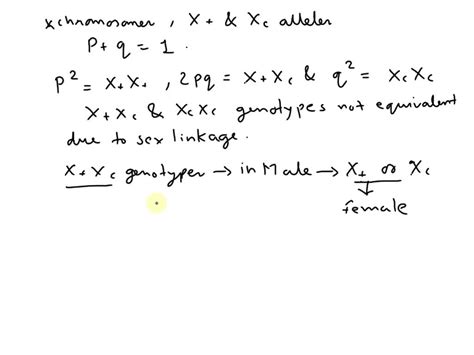 x chromosomes, X+ & Xc alleles
P + q = 1.
P² = X+X+, 2pq = X+Xc & q² = XcXc
X+Xc & XcXc genotypes not equivalent
due to sex linkage.
X+Xc genotypes → in Male → X+ or Xc
↓
female